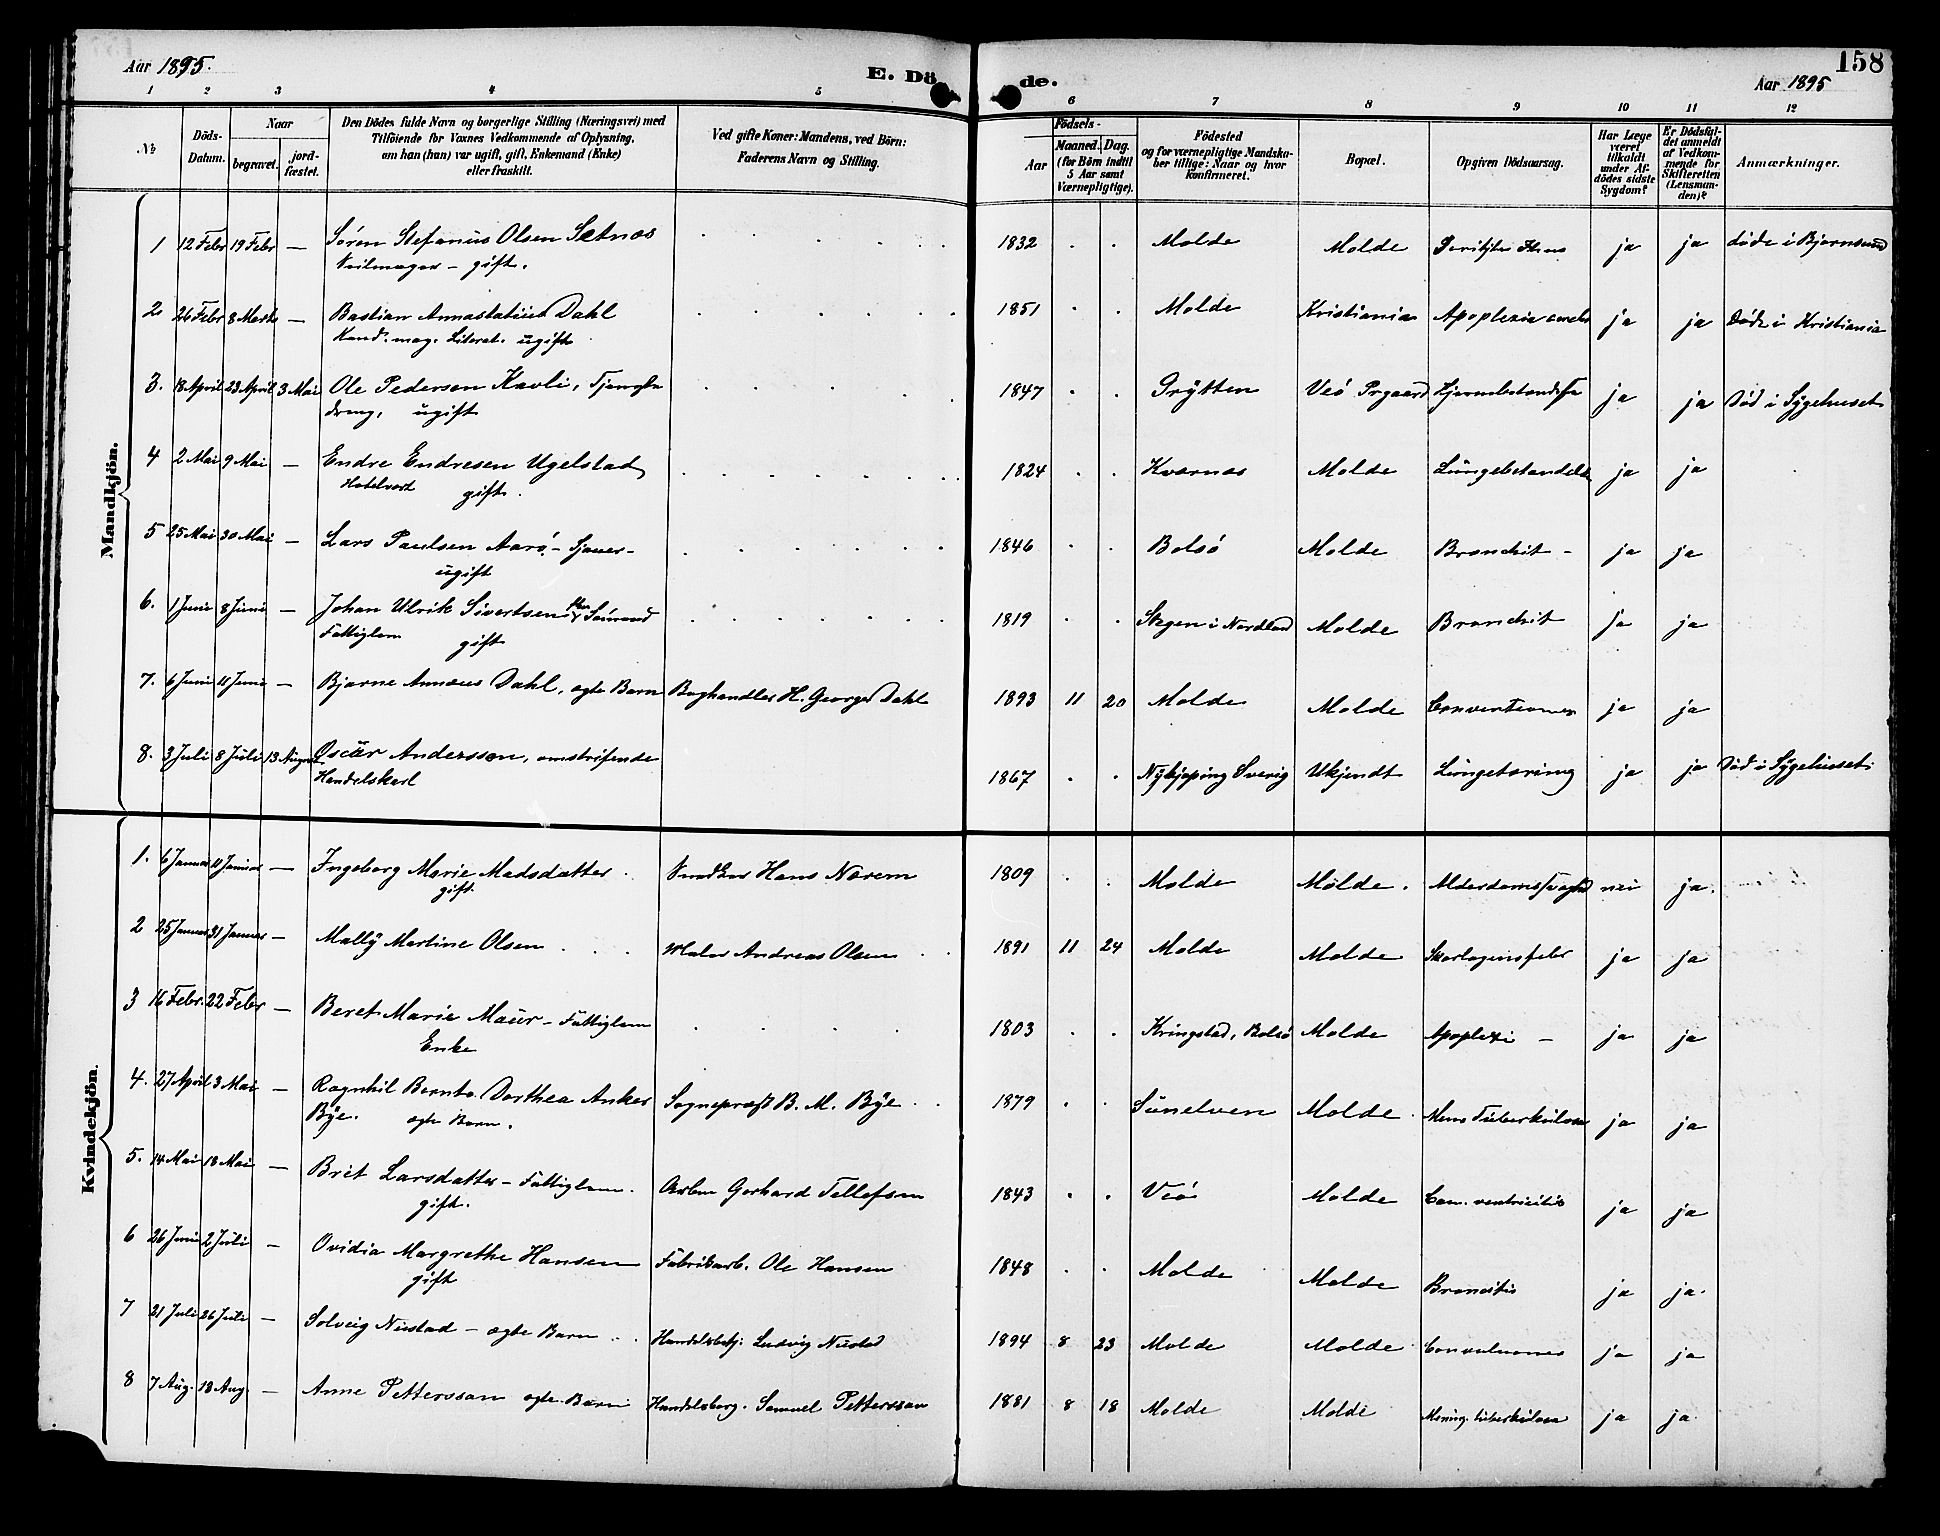 Aar 1895.
E. Döde.
158
Aar 1895
1 2 3 4 5 6 7 8 9 10 11 12
No
Döds-Datum.
Naar
begravet.
jordfæstet.
Den Dödes fulde Navn og borgerlige Stilling (Næringsvei) med
Tilföiende for Voxnes Vedkommende af Oplysning,
om han (hun) var ugift, gift, Enkemand (Enke)
eller fraskilt.
Ved gifte Koner: Mandens, ved Börn:
Faderens Navn og Stilling.
Födsels-
Aar
Maaned. Dag.
(for Börn indtil
5 Aar samt
Værnepligtige).
Födested
og for værnepligtige Mandskaber tillige: Naar og hvor
konfirmeret.
Bopæl.
Opgiven Dödsaarsag.
Har Læge
været
tilkaldt
under Afdödes sidste
Sygdom?
Er Dödsfaldet anmeldt
af Vedkommende for
Skifteretten
(Lensmanden)?
Anmærkninger.
Mandkjön.
1 12 Febr 19 Febr — Søren Stefanus Olsen Sætnes 1832 Molde Molde ja ja døde i Bjornsund
gift.
2 26 Febr 8 Marts — Bastian Annastatius Dahl 1851 Molde Kristiania Apoplexia cerebri ja ja Døde i Kristiania
Kand. mag. Literat. ugift
3. 18 April 23 April 3 Mai Ole Pedersen Kavli, Tjeneste 1847 Grytten Veö Prgaard ja ja Död i Sygehuset
dreng, ugift
4 2 Mai 9 Mai — Endre Endresen Ugelstad 1824 Kværnes Molde Lungebetændelse ja ja
Hotelvært gift.
5 25 Mai 30 Mai — Lars Paulsen Aarö – Sjauer – 1846 Bolsö Molde Bronchit – ja ja
ugift
6. 1 Juni 8 Juni — Johan Ulrik Sivertsen 1819 Stegen i Nordland Molde Bronchit ja ja
Fattiglem gift
7. 6 Juni 11 Juni — Bjarne Annæus Dahl, ægte Barn Boghandler H. George Dahl 1893 11 20 Molde Molde Convertiones ja ja
8. 3 Juli 8 Juli 13 August Oscar Andersson, omstrifende 1867 Nykjøping Sverig Ukjendt Lungetæring ja ja Död i Sygehuset
Handelskarl
Kvindekjön.
1. 6 Januar 11 Januar — Ingeborg Marie Madsdatter Hans Norem 1809 Molde Molde. nei ja.
gift
2 25 Januar 31 Januar — Mally Martine Olsen Maler Andreas Olsen 1891 11 24 Molde Molde Skarlagensfeber ja ja
3 16 Febr. 22 Febr — Beret Marie Maur – Fattiglem 1803 Kringstad, Bolsö Molde Apoplexi – ja ja
Enke
4. 27 April 3 Mai — Ragnhil Bernto Dorthea Anker Sognepræst B. M. Bye 1879 Sunelven Molde ja ja
Bye. ægte Barn.
5. 14 Mai 18 Mai — Brit Larsdatter – Fattiglem. Arbm Gerhard Tellefsen 1843 Veö Molde ja ja
gift.
6 26 Juni 2 Juli — Ovidia Margrethe Hansen Fabrikarb. Ole Hansen 1848 Molde Molde Bronchitis ja ja.
gift
7 21 Juli 26 Juli — Solveig Nustad – ægte Barn Handelsbetj. Ludvig Nustad 1894 8 23 Molde Molde Convulsiones ja ja
8 7 Aug. 13 Aug — Anne Pettersson ægte Barn Handelsborg. Samuel Pettersson 1881 8 18 Molde Molde Mening. tuberkulosa ja ja.